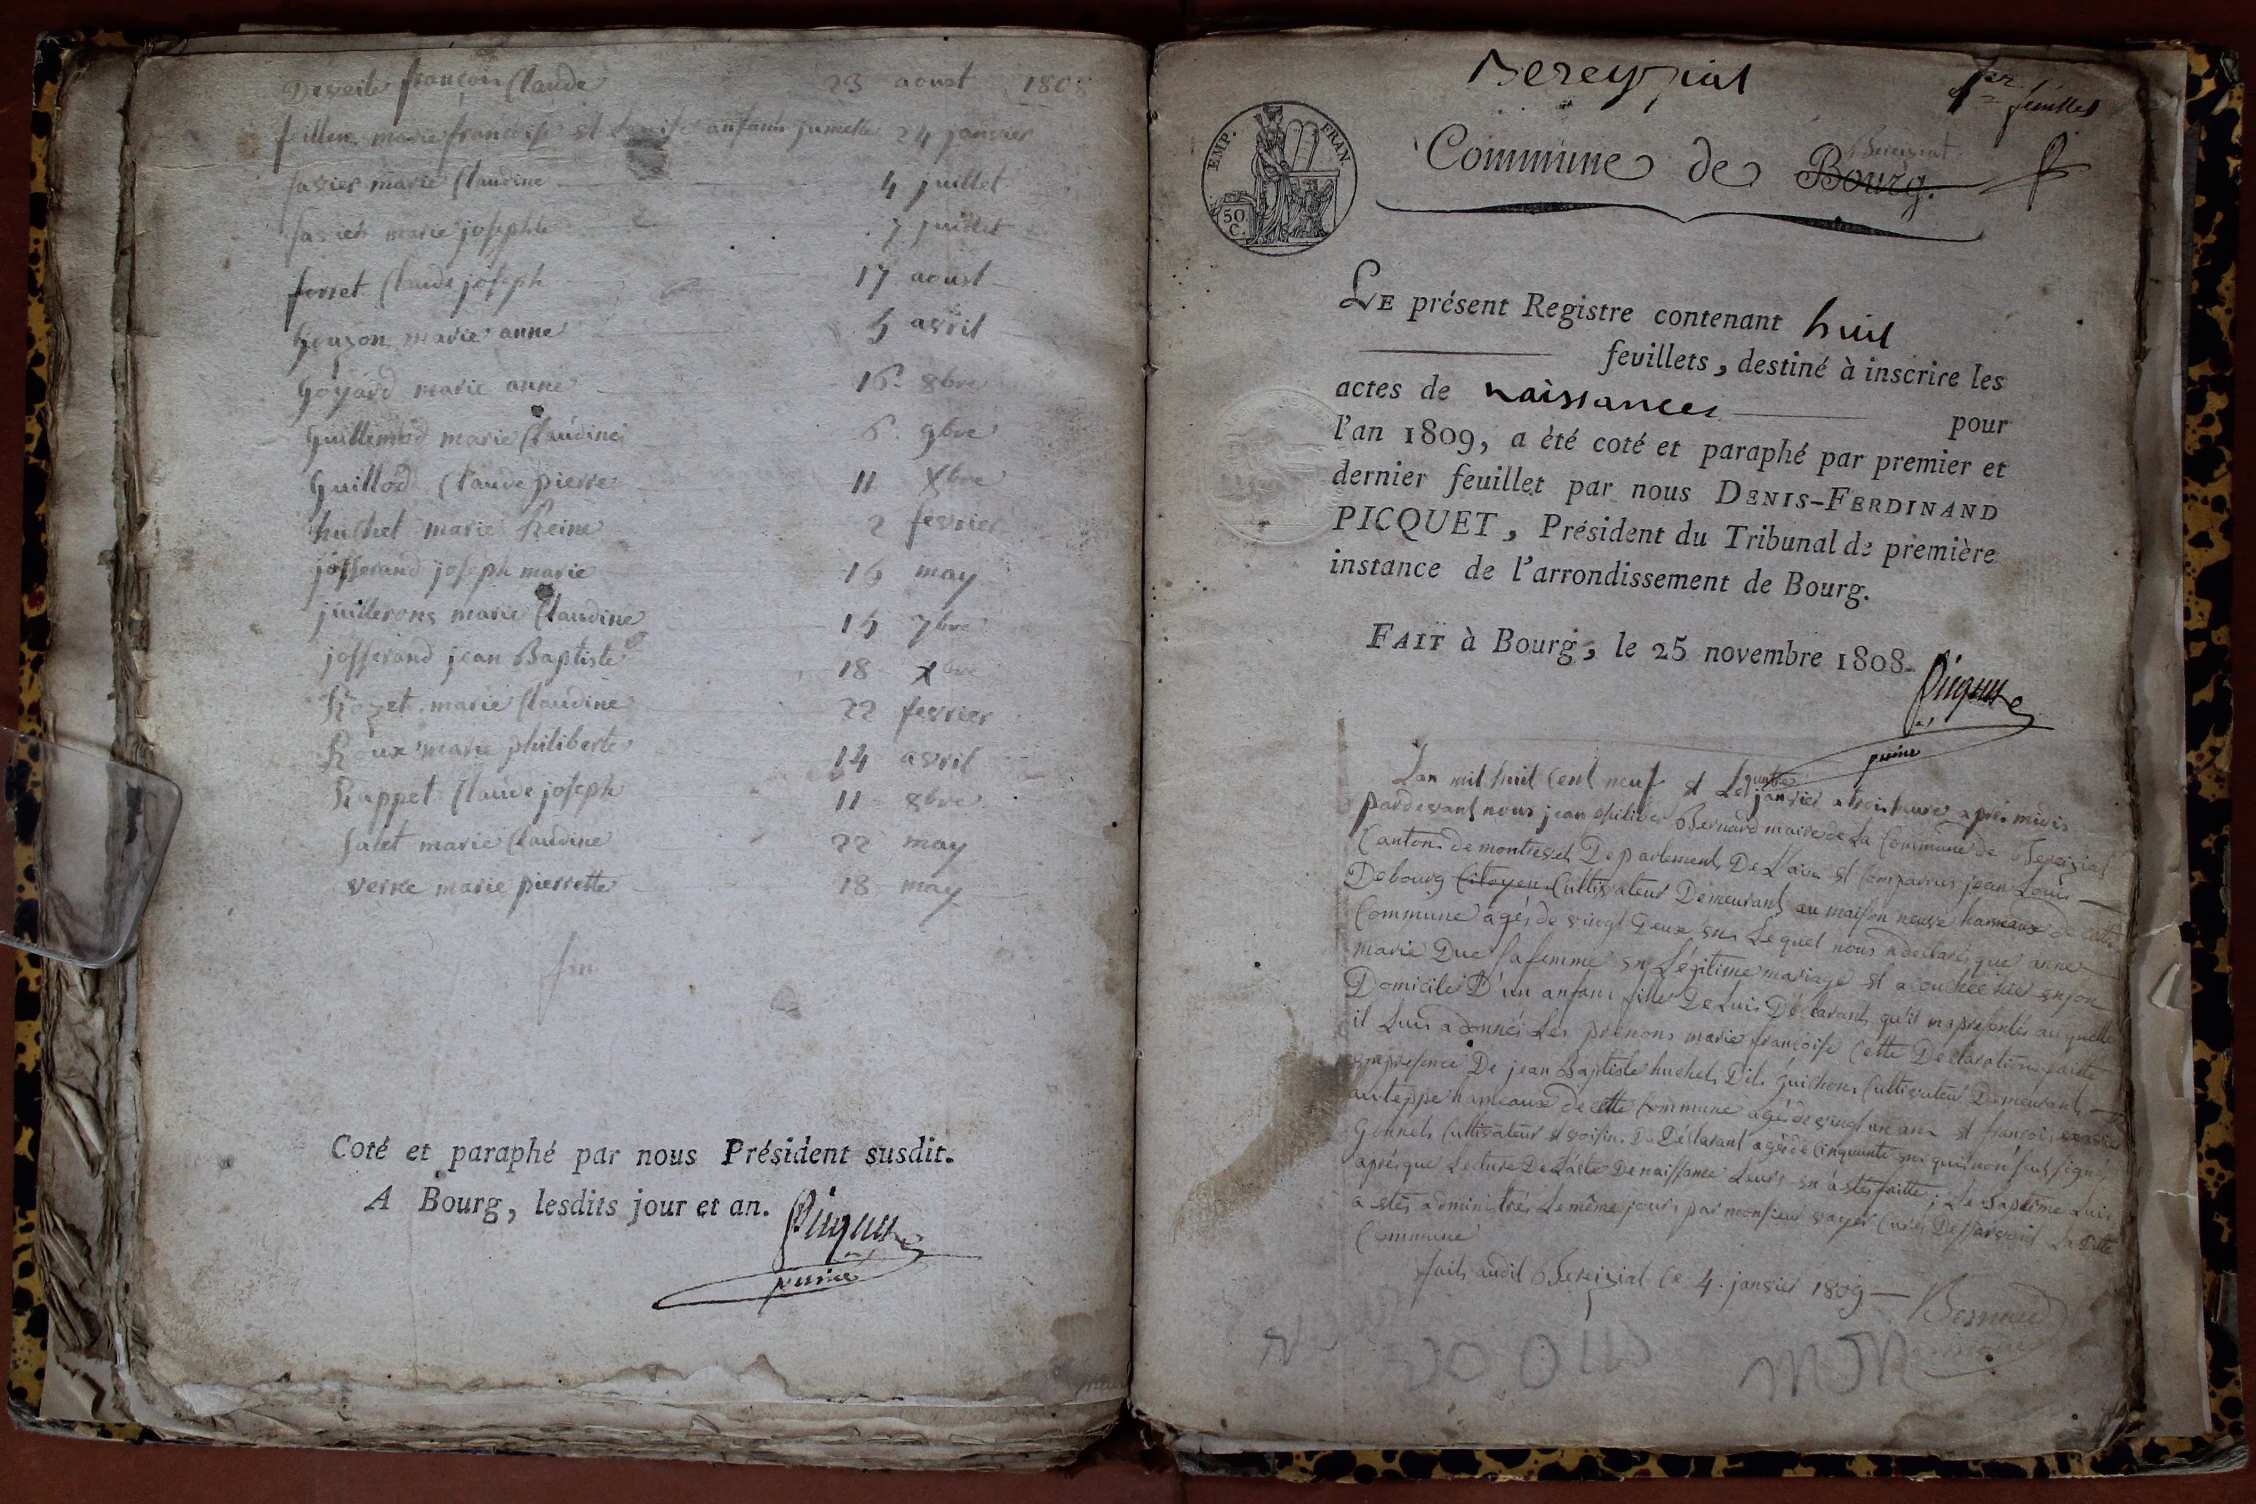 françois Claude 23 aoust 1808
marie françoise et anfans jumelle 24 janvier
favier marie Claudine 4 juillet
favier marie josephte 7 juillet
forret Claude joseph 17 aoust
gouzon marie anne 5 avril
goyard marie anne 16 8bre
guillemod marie Claudine 6 9bre
guillod Claude pierre 11 xbre
huchet marie Reine 2 fevrier
josserand joseph marie 16 may
juillerons marie Claudine 15 7bre
josserand jean Baptiste 18 xbre
Rozet marie Claudine 22 fevrier
Roux marie philiberte 14 avril
Rappet Claude joseph 11 8bre
Salet marie Claudine 22 may
verne marie pierrette 18 may
fin
Coté et paraphé par nous Président susdit.
A Bourg, lesdits jour et an.
Picquet
Bereyziat
1er feuillet
EMP. FRAN.
50 C.
Bereiziat
Commune de Bourg.
LE présent Registre contenant huit
feuillets, destiné à inscrire les
actes de naissances pour
l'an 1809, a èté coté et paraphé par premier et
dernier feuillet par nous DENIS-FERDINAND
PICQUET, Président du Tribunal de première
instance de l'arrondissement de Bourg.
FAIT à Bourg, le 25 novembre 1808.
Picquet
L'an mil huit Cent neuf et Le quatre janvier a trois heure aprés midis
pardevant nous jean philiber Bernard maire de La Commune de Bereiziat
Canton de montrevel Departement De L'ain et Comparus jean Louis
Debourg Citoyen Cultivateur Demeurant au maison neuve hameaux de cette
Commune agés de vingt Deux ans Lequel nous a declarés que anne
marie Duc sa femme en Légitime mariage et acouchée hier en son
Domicile D'un anfans fille De Luis Déclarant qu'il m'a presentés auquelle
il Luis a donnés Les prenoms marie françoise Cette Declaration faitte
en presence De jean Baptiste huchet Dit guichon Cultivateur Demeurant
au teppe hameaux de cette Commune agé de vingt un ans et françois
Cultivateur et voisin Du Déclarant agé de Cinquante ans qui n'on sçut signé
aprés que Lecture De L'acte De naissance Leurs en a etés faitte; Le Baptême Luis
a etés administrés Le même jours par monsieur Curés Desservant La Ditte
Commune
fait audit Bereiziat Ce 4 janvier 1809
Bernard
maire